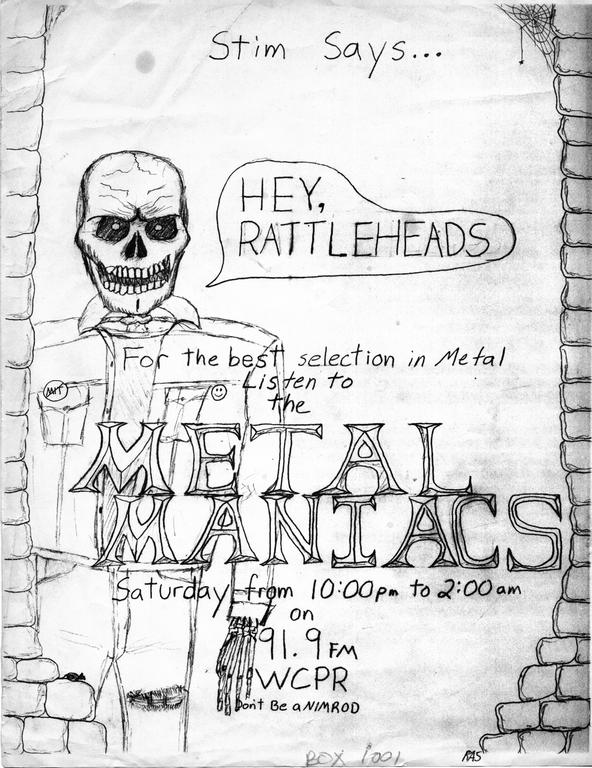 Stim Says...
HEY,
RATTLEHEADS
For the best selection in Metal
Listen to
the
MIT
METAL
MANIACS
Saturday from 10:00pm to 2:00am
on
91.9 FM
WCPR
Don't Be a NIMROD
BOX 1001
RAS